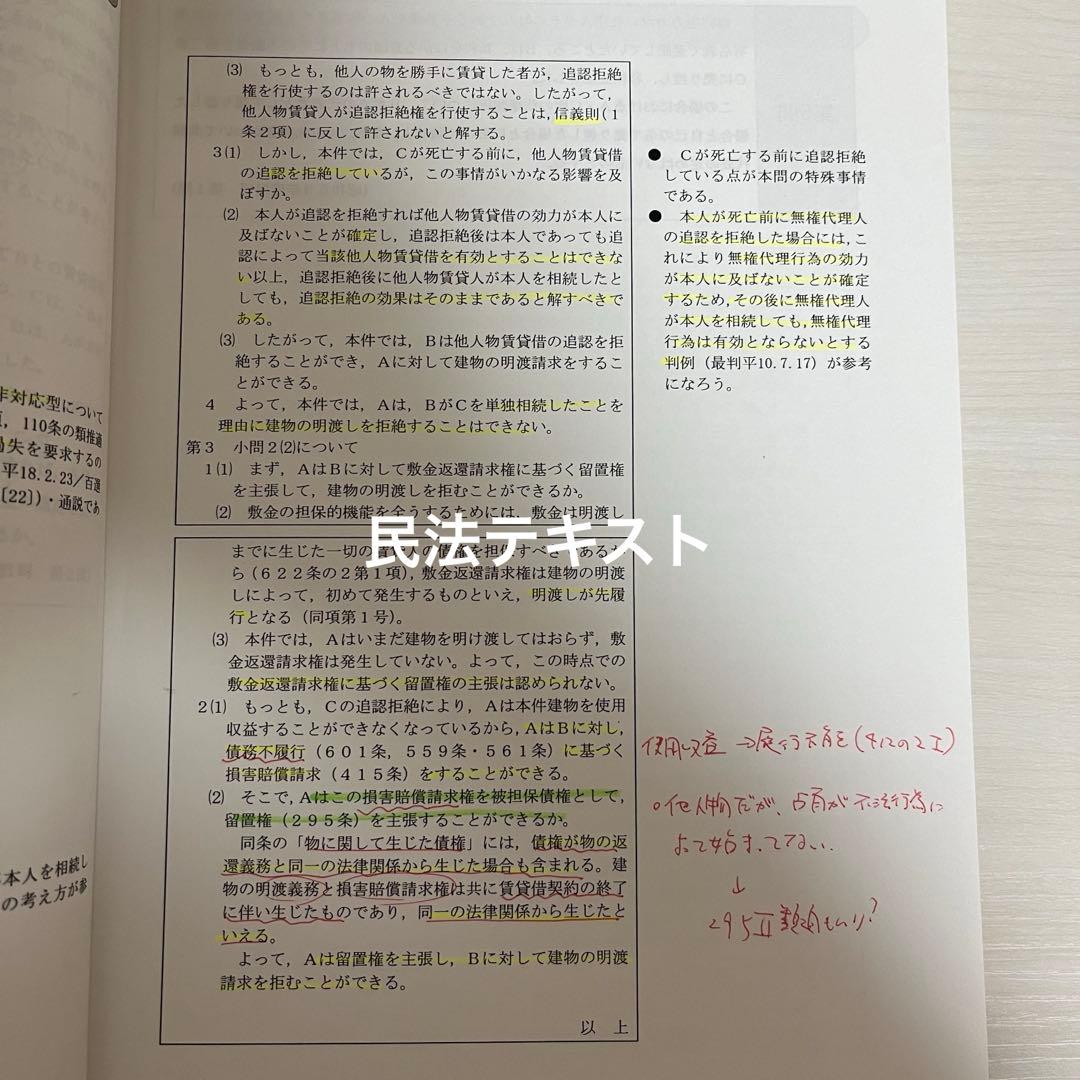 (3) もっとも，他人の物を勝手に賃貸した者が，追認拒絶
権を行使するのは許されるべきではない。したがって，
他人物賃貸人が追認拒絶権を行使することは，信義則（１
条２項）に反して許されないと解する。
３(1) しかし，本件では，Ｃが死亡する前に，他人物賃貸借
の追認を拒絶しているが，この事情がいかなる影響を及
ぼすか。
(2) 本人が追認を拒絶すれば他人物賃貸借の効力が本人に
及ばないことが確定し，追認拒絶後は本人であっても追
認によって当該他人物賃貸借を有効とすることはできな
い以上，追認拒絶後に他人物賃貸人が本人を相続したと
しても，追認拒絶の効果はそのままであると解すべきで
ある。
(3) したがって，本件では，Ｂは他人物賃貸借の追認を拒
絶することができ，Ａに対して建物の明渡請求をするこ
とができる。
４ よって，本件では，Ａは，ＢがＣを単独相続したことを
理由に建物の明渡しを拒絶することはできない。
第３ 小問２(2)について
１(1) まず，ＡはＢに対して敷金返還請求権に基づく留置権
を主張して，建物の明渡しを拒むことができるか。
(2) 敷金の担保的機能を全うするためには，敷金は明渡し
● Ｃが死亡する前に追認拒絶
している点が本問の特殊事情
である。
● 本人が死亡前に無権代理人
の追認を拒絶した場合には，こ
れにより無権代理行為の効力
が本人に及ばないことが確定
するため，その後に無権代理人
が本人を相続しても，無権代理
行為は有効とならないとする
判例（最判平10.7.17）が参考
になろう。
民法テキスト
までに生じた一切の賃借人の債権を担保すべきであるか
ら（６２２条の２第１項），敷金返還請求権は建物の明渡
しによって，初めて発生するものといえ，明渡しが先履
行となる（同項第１号）。
(3) 本件では，Ａはいまだ建物を明け渡してはおらず，敷
金返還請求権は発生していない。よって，この時点での
敷金返還請求権に基づく留置権の主張は認められない。
２(1) もっとも，Ｃの追認拒絶により，Ａは本件建物を使用
収益することができなくなっているから，ＡはＢに対し，
債務不履行（６０１条，５５９条・５６１条）に基づく
損害賠償請求（４１５条）をすることができる。
(2) そこで，Ａはこの損害賠償請求権を被担保債権として，
留置権（２９５条）を主張することができるか。
同条の「物に関して生じた債権」には，債権が物の返
還義務と同一の法律関係から生じた場合も含まれる。建
物の明渡義務と損害賠償請求権は共に賃貸借契約の終了
に伴い生じたものであり，同一の法律関係から生じたと
いえる。
よって，Ａは留置権を主張し，Ｂに対して建物の明渡
請求を拒むことができる。
以 上
使用収益 →履行不能を(412の2Ⅰ)
○他人物だが、占有が不法行為に
よって始まってない..
↓
295Ⅱ類推もいり?
非対応型について
110条の類推適
過失を要求するの
平18.2.23／百選
〔22〕)・通説であ
本人を相続し
の考え方が参